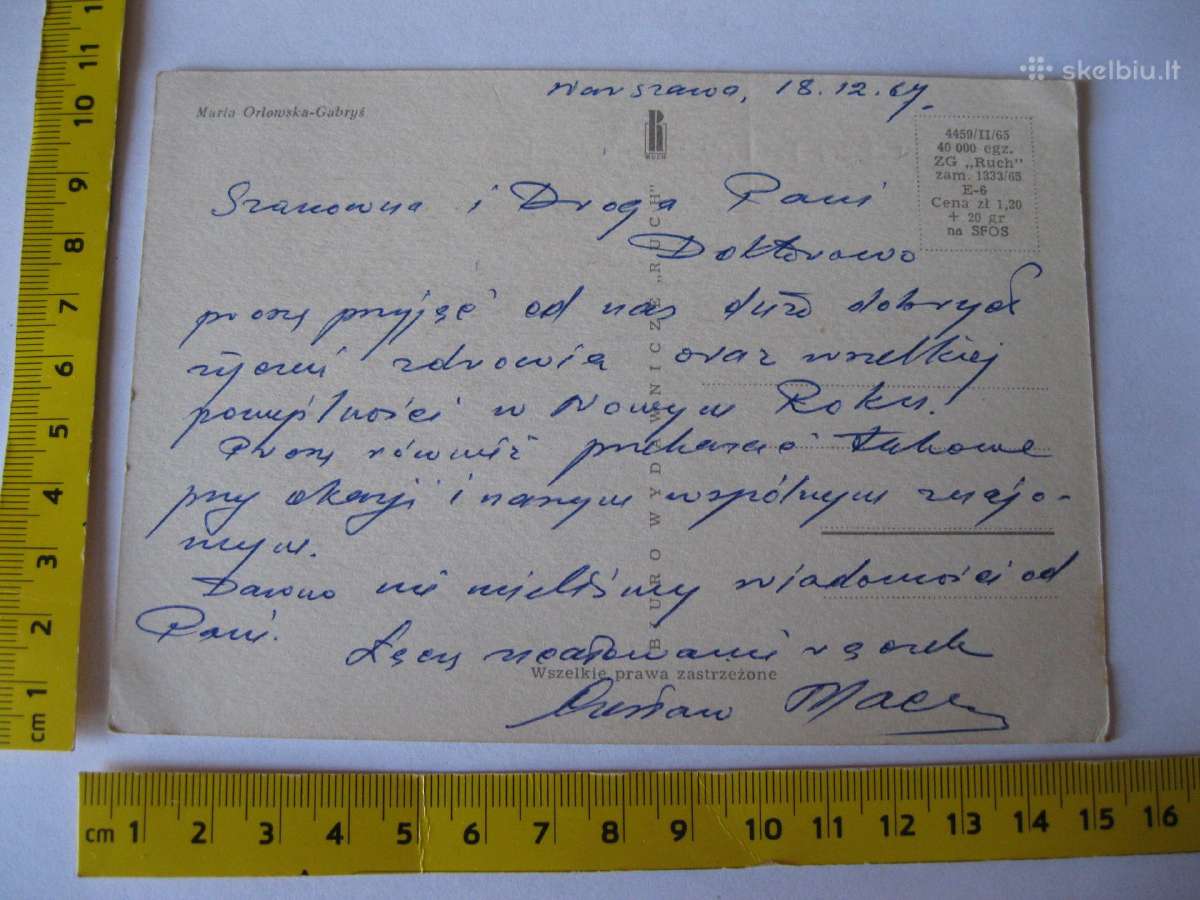 skelbiu.lt
Warszawa, 18.12.67.
Maria Orłowska-Gabryś
RUCH
4459/II/65
40 000 egz.
ZG „Ruch"
zam. 1333/65
E-6
Cena zł 1,20
+ 20 gr
na SFOS
Szanowna i Droga Pani
Doktorowo
proszę przyjąć od nas dużo dobrych
życzeń zdrowia oraz wszelkiej
pomyślności w Nowym Roku.
Proszę również przekazać takowe
przy okazji i naszym wspólnym znajo-
mym.
Dawno nie mieliśmy wiadomości od
Pani.
Łączę ucałowanie rączek
BIURO WYDAWNICZE „RUCH"
Wszelkie prawa zastrzeżone
cm 1 2 3 4 5 6 7 8 9 10 11
cm 1 2 3 4 5 6 7 8 9 10 11 12 13 14 15 16